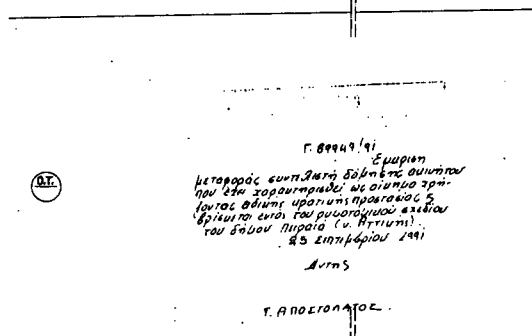 Γ. 89949/91
Έγκριση
μεταφοράς συντελεστή δόμησης ακινήτου
που έχει χαρακτηρισθεί ως οίκημα χρή-
ζοντας ειδικής κρατικής προστασίας &
βρίσκεται εντός του ρυμοτομικού σχεδίου
του δήμου Πειραιά (ν. Αττικής).
25 Σεπτεμβρίου 1991
Ο.Τ.
Τ. ΑΠΟΣΤΟΛΑΤΟΣ.